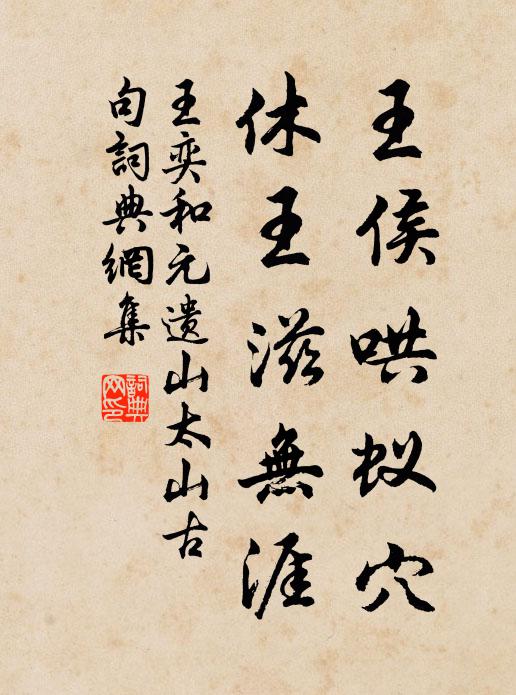 王侯哄蚁穴
休王滋無涯
王奕和元遗山太山古
句詞典網集
詞典网印